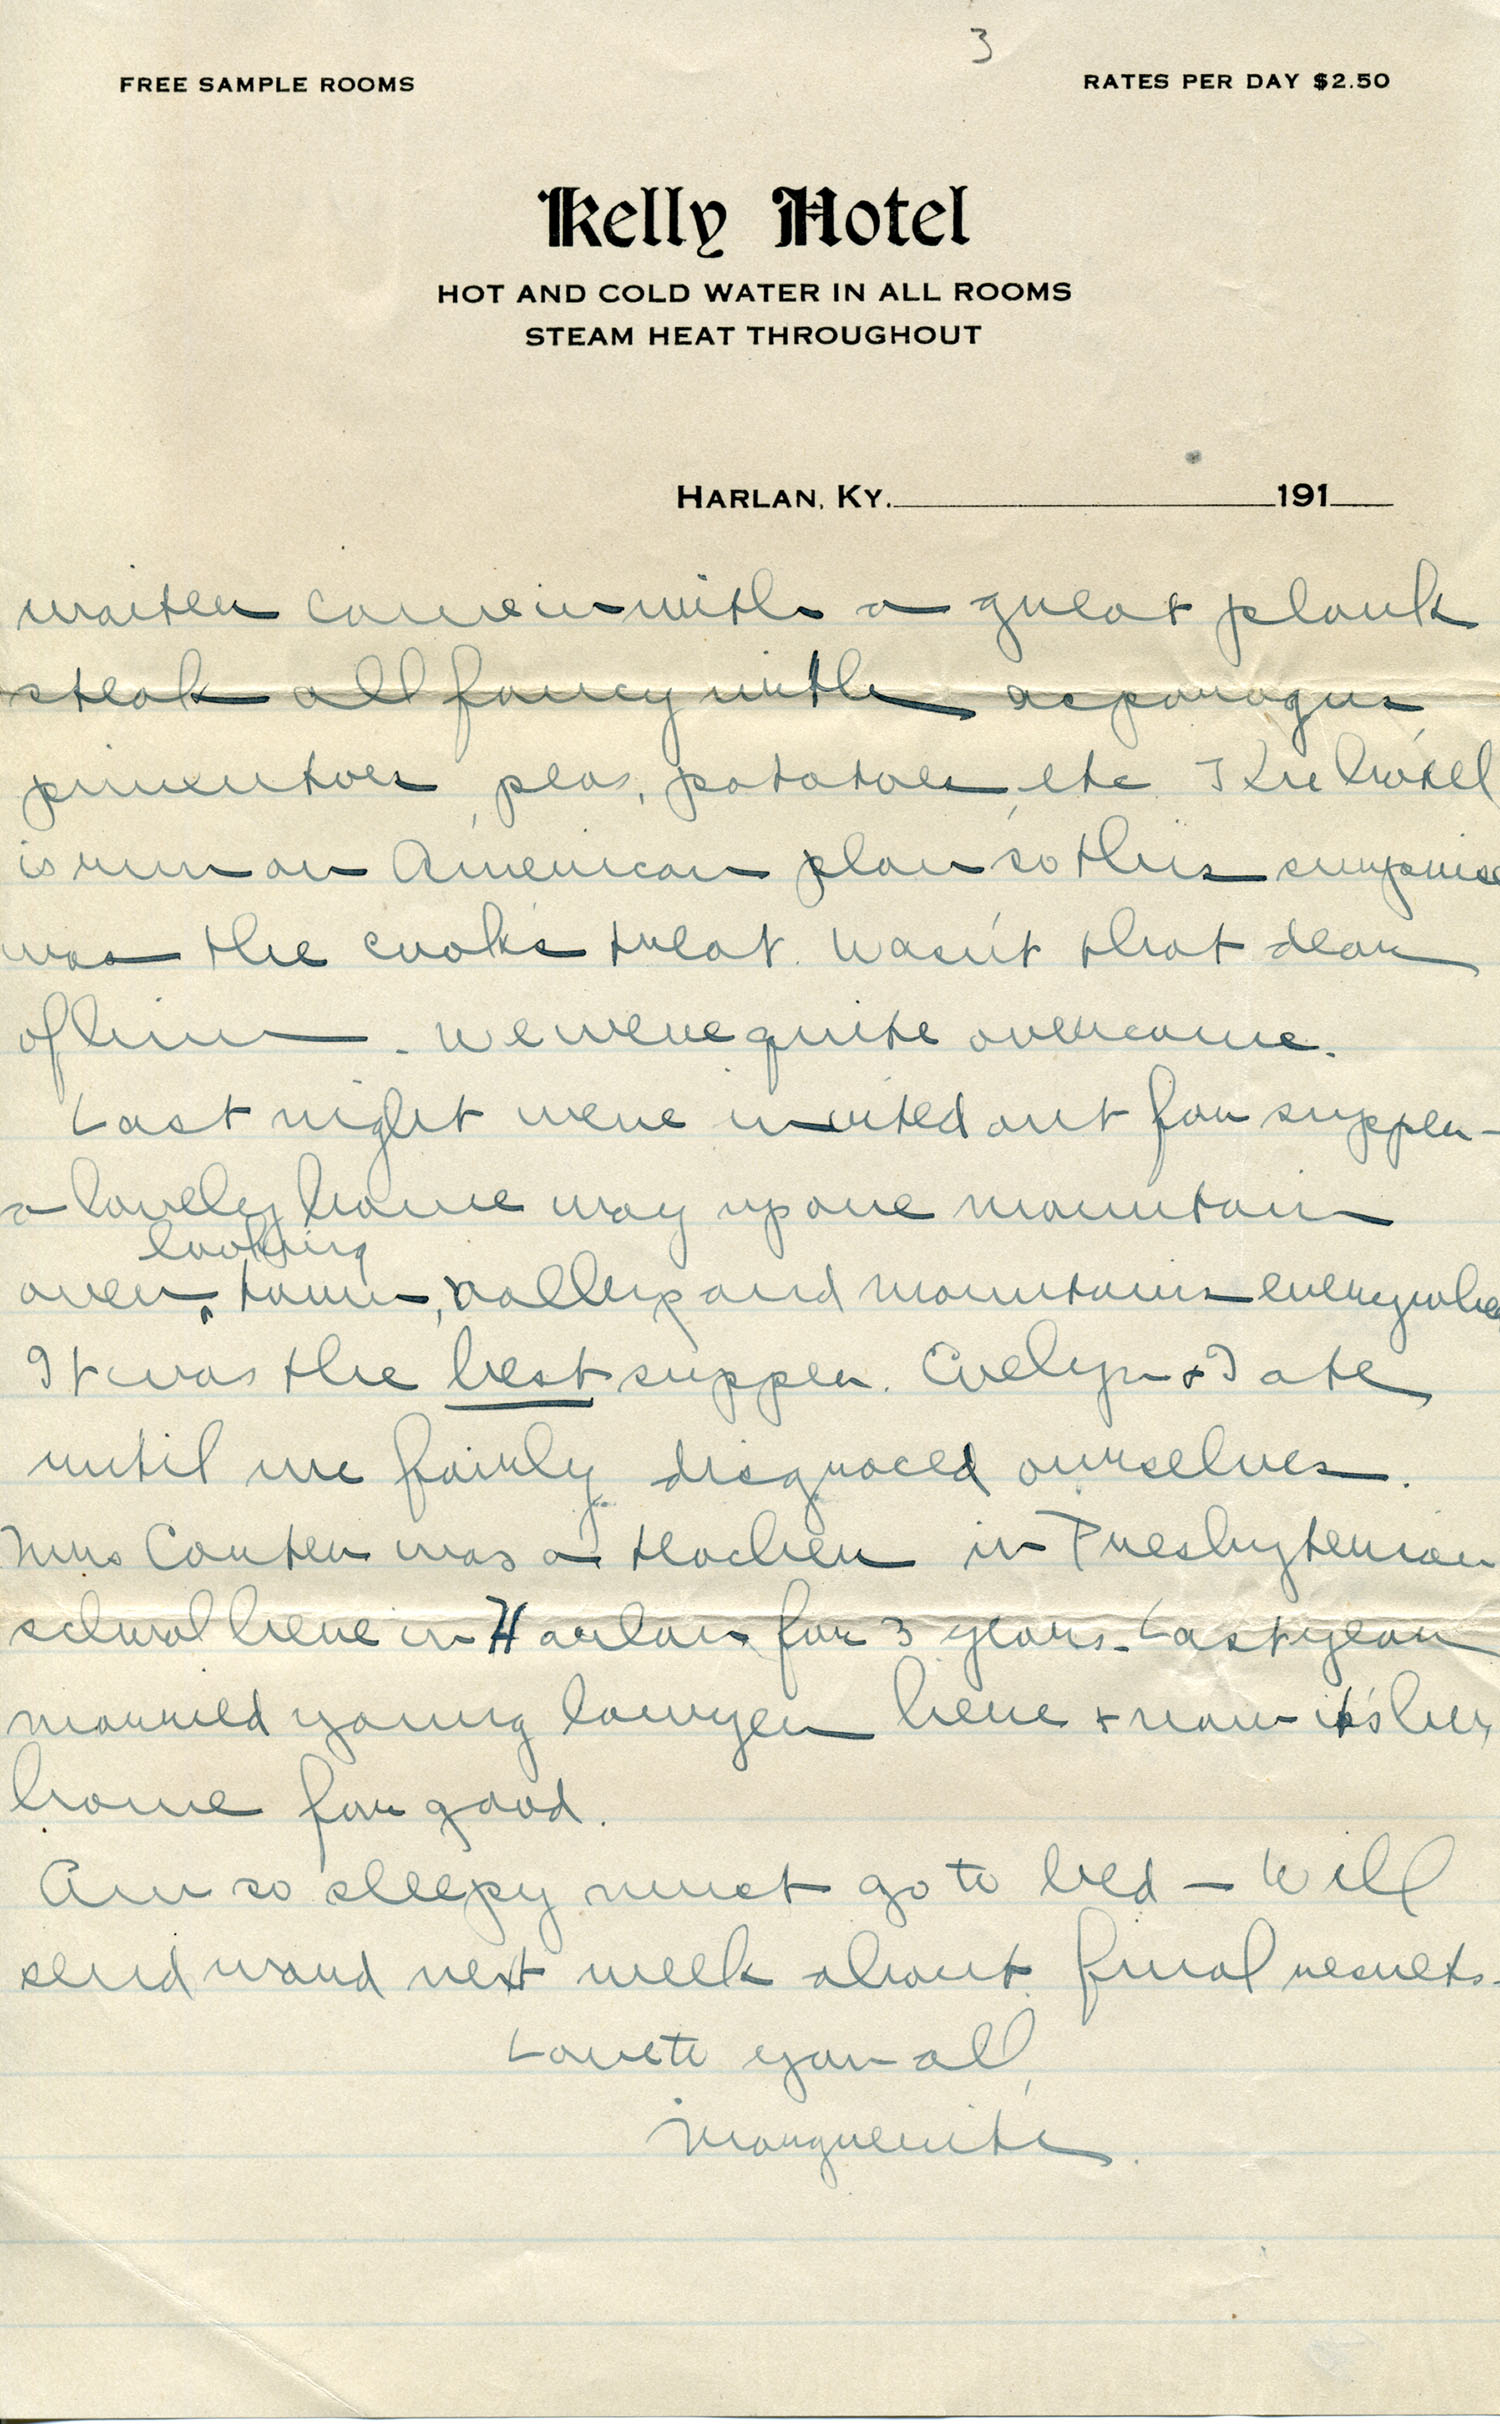 3
FREE SAMPLE ROOMS
RATES PER DAY $2.50
Kelly Hotel
HOT AND COLD WATER IN ALL ROOMS
STEAM HEAT THROUGHOUT
HARLAN, KY. 191
waiter came in with a great plank
steak all fancy with asparagus,
pimentoes, peas, potatoes, etc. The hotel
is run on American plan so this surprise
was the cook's treat. Wasn't that dear
of him - We were quite overcome.
Last night were invited out for supper -
a lovely home way up one mountain
looking
over town, valley and mountains everywhere
It was the best supper. Evelyn & I ate
until we fairly disgraced ourselves.
Mrs Carter was a teacher in Presbyterian
school here in Harlan for 3 years - Last year
married young lawyer here & now it's her
home for good.
Am so sleepy must go to bed - Will
send word next week about final results -
Love to you all,
Marguerite.